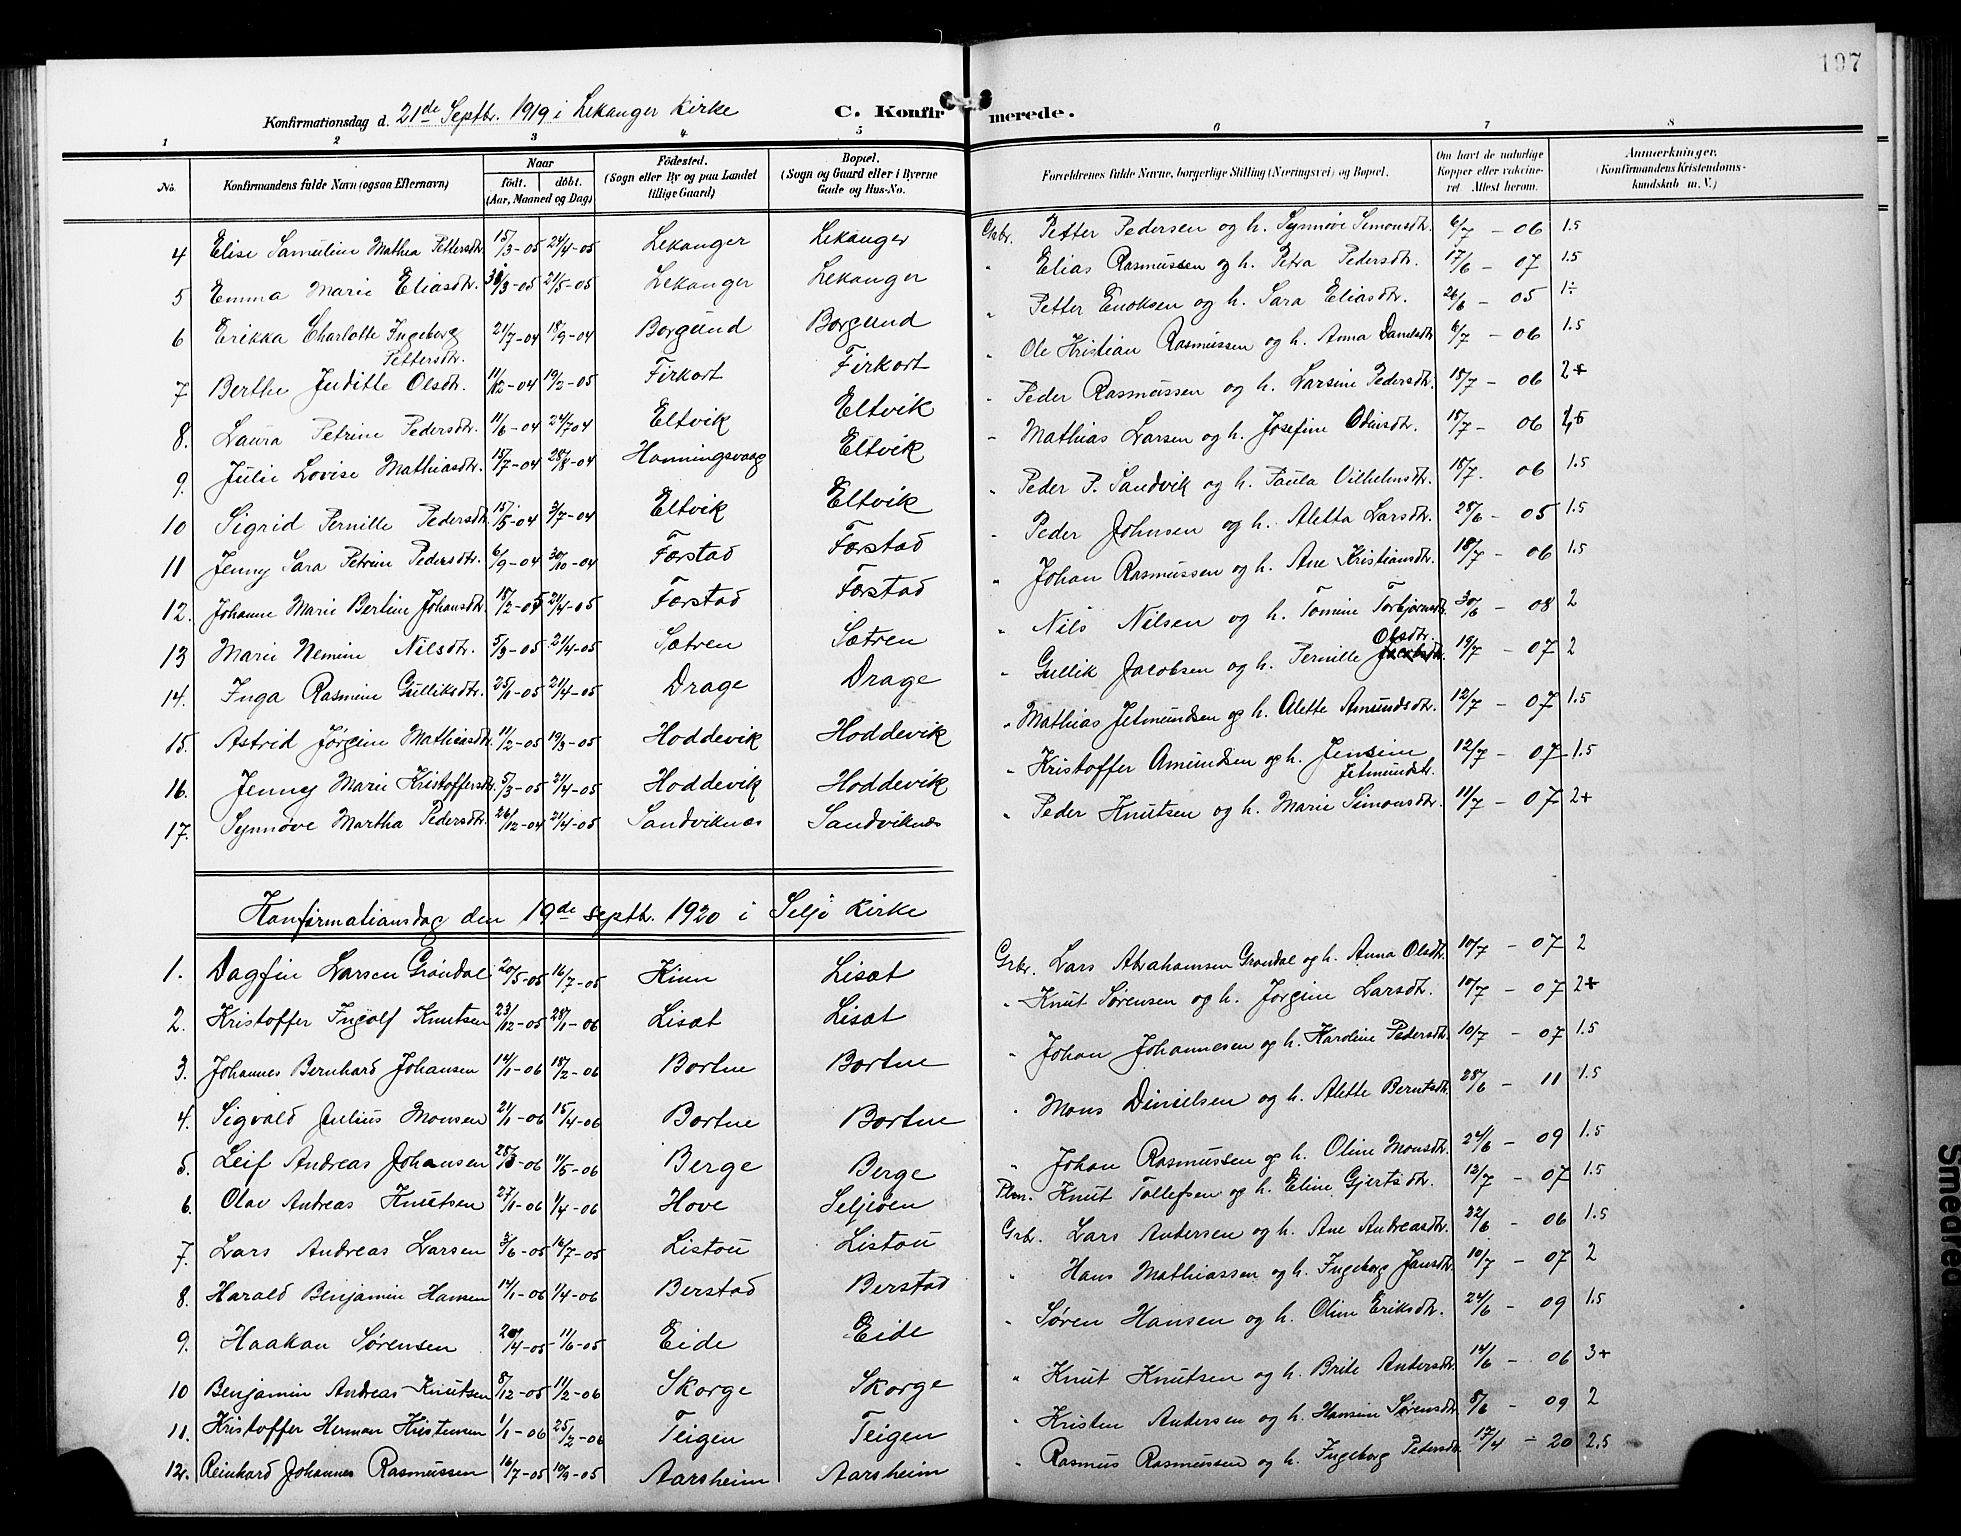 197
Konfirmationsdag d. 21de Septbr. 1919 i Lekanger Kirke C. Konfirmerede.
1 2 3 4 5 6 7 8
No. Konfirmandens fulde Navn (ogsaa Efternavn) Naar födt. döbt. (Aar, Maaned og Dag) Födested. (Sogn eller By og paa Landet tillige Gaard) Bopæl. (Sogn og Gaard eller i Byerne Gade og Hus-No. Forældrenes fulde Navne, borgerlige Stilling (Næringsvei) og Bopæl. Om havt de naturlige Kopper eller vakcineret. Attest herom. Anmærkninger, (Konfirmandens Kristendomskundskab m. V.)
4 Elise Samuline Mathea Pettersdtr. 15/3-05 24/4-05 Lekanger Lekanger Grbr. Petter Pedersen og h. Synnøve Simonsdtr. 6/7 - 06 1.5
5 Emma Marie Eliasdtr. 31/3-05 21/5-05 Lekanger Lekanger " Elias Rasmussen og h. Petra Pedersdtr. 17/6 - 07 1.5
6 Erikka Charlotte Ingeborg Pettersdtr. 21/7-04 18/9-04 Borgund Borgund " Petter Enoksen og h. Sara Eliasdtr. 26/6 - 05 1÷
7 Berthe Juditte Olsdtr. 11/12-04 19/2-05 Firkort Firkort " Ole Kristian Rasmussen og h. Anna Danielsdtr 6/7 - 06 1.5
8. Laura Petrine Pedersdtr. 11/6-04 24/7 04 Eltvik Eltvik " Peder Rasmussen og h. Larsine Pedersdtr. 18/7 - 06 2+
9. Julie Lovise Mathiasdtr. 15/7-04 28/8-04 Honningsvaag Eltvik " Mathias Larsen og h. Josefine Odinsdtr. 18/7 - 06 2,5
10 Sigrid Pernille Pedersdtr. 15/5-04 3/7-04 Eltvik Eltvik " Peder P. Sandvik og h. Paula Vilhelmsdtr. 18/7. 06 1.5
11 Jenny Sara Petrine Pedersdtr. 6/9-04 30/10-04 Forstad Forstad " Peder Johnsen og h. Aletta Larsdtr. 28/6 - 05 1.5
12. Johanne Marie Bertine Johansdtr. 18/2-05 21/4-05 Forstad Forstad " Johan Rasmussen og h. Ane Kristiansdtr. 18/7 - 06 1.5
13 Marie Nemine Nilsdtr. 5/3-05 21/4-05 Sætren Sætren " Nils Nilsen og h. Tomine Torbjørnsdtr. 30/6 - 08 2
14. Inga Rasmine Gulliksdtr. 25/1-05 21/4-05 Drage Drage " Gullik Jacobsen og h. Pernille Olsdtr. 19/7 - 07 2
15. Astrid Jørgine Mathiasdtr. 11/2-05 19/3-05 Hoddevik Hoddevik " Mathias Jetmundsen og h. Alette Amundsdtr. 12/7 - 07 1.5
16. Jenny Marie Kristoffersdtr. 5/3-05 21/4-05 Hoddevik Hoddevik " Kristoffer Amundsen og h. Jensine Jetmundsdtr. 12/7 - 07 1.5
17. Synnøve Martha Pedersdtr. 26/12-04 21/4-05 Sandviknes Sandviknes " Peder Knutsen og h. Marie Simonsdtr. 11/7 - 07 2+
Konfirmationsdag den 19de septb. 1920 i Seljø Kirke
1. Dagfin Larsen Grøndal 20/5-05 16/7-05 Kinn Lisæt Grbr. Lars Abrahamsen Grøndal og h. Anna Olsdtr. 10/7 - 07 2
2. Kristoffer Ingolf Knutsen 23/12-05 28/1-06 Lisæt Lisæt " Knut Sørensen og h. Jørgine Larsdtr. 10/7 - 07 2+
3. Johannes Bernhard Johansen 14/1-06 18/2-06 Bortne Bortne " Johan Johannesen og h. Karoline Pedersdtr. 10/7 - 07 1.5
4. Sigvald Julius Monsen 21/1-06 15/4-06 Bortne Bortne " Mons Dinielsen og h. Alette Berntsdtr. 28/6 - 11 1.5
5. Leif Andreas Johansen 28/3-06 11/5-06 Berge Berge " Johan Rasmussen og h. Oline Monsdtr. 24/6 - 09 1.5
6. Olav Andreas Knutsen 27/1-06 1/4-06 Hove Seljeøen Plm. Knut Tollefsen og h. Eline Gjertsdtr. 12/7 - 07 1.5
7. Lars Andreas Larsen 3/6-05 16/7-05 Listou Listou Grbr. Lars Andersen og h. Ane Andreasdtr. 22/6 - 06 1.5
8. Harald Benjamin Hansen 14/1-06 1/4-06 Berstad Berstad " Hans Mathiassen og h. Ingeborg Jansdtr. 10/7 - 07 2
9. Haakon Sørensen 20/4-05 11/6-05 Eide Eide " Søren Hansen og h. Oline Eriksdtr. 24/6 - 09 1.5
10 Benjamin Andreas Knutsen 8/12-05 11/2-06 Skorge Skorge " Knut Knutsen og h. Brite Andersdtr. 14/6 - 06 3+
11. Kristoffer Herman Kristensen 1/1-06 25/2-06 Teigen Teigen " Kristen Andersen og h. Hansine Sørensdtr. 8/6 - 09 2
12. Reinhard Johannes Rasmussen 16/7-05 10/9-05 Aarsheim Aarsheim " Rasmus Rasmussen og h. Ingeborg Pedersdtr. 17/4 - 20 2.5
Smedred